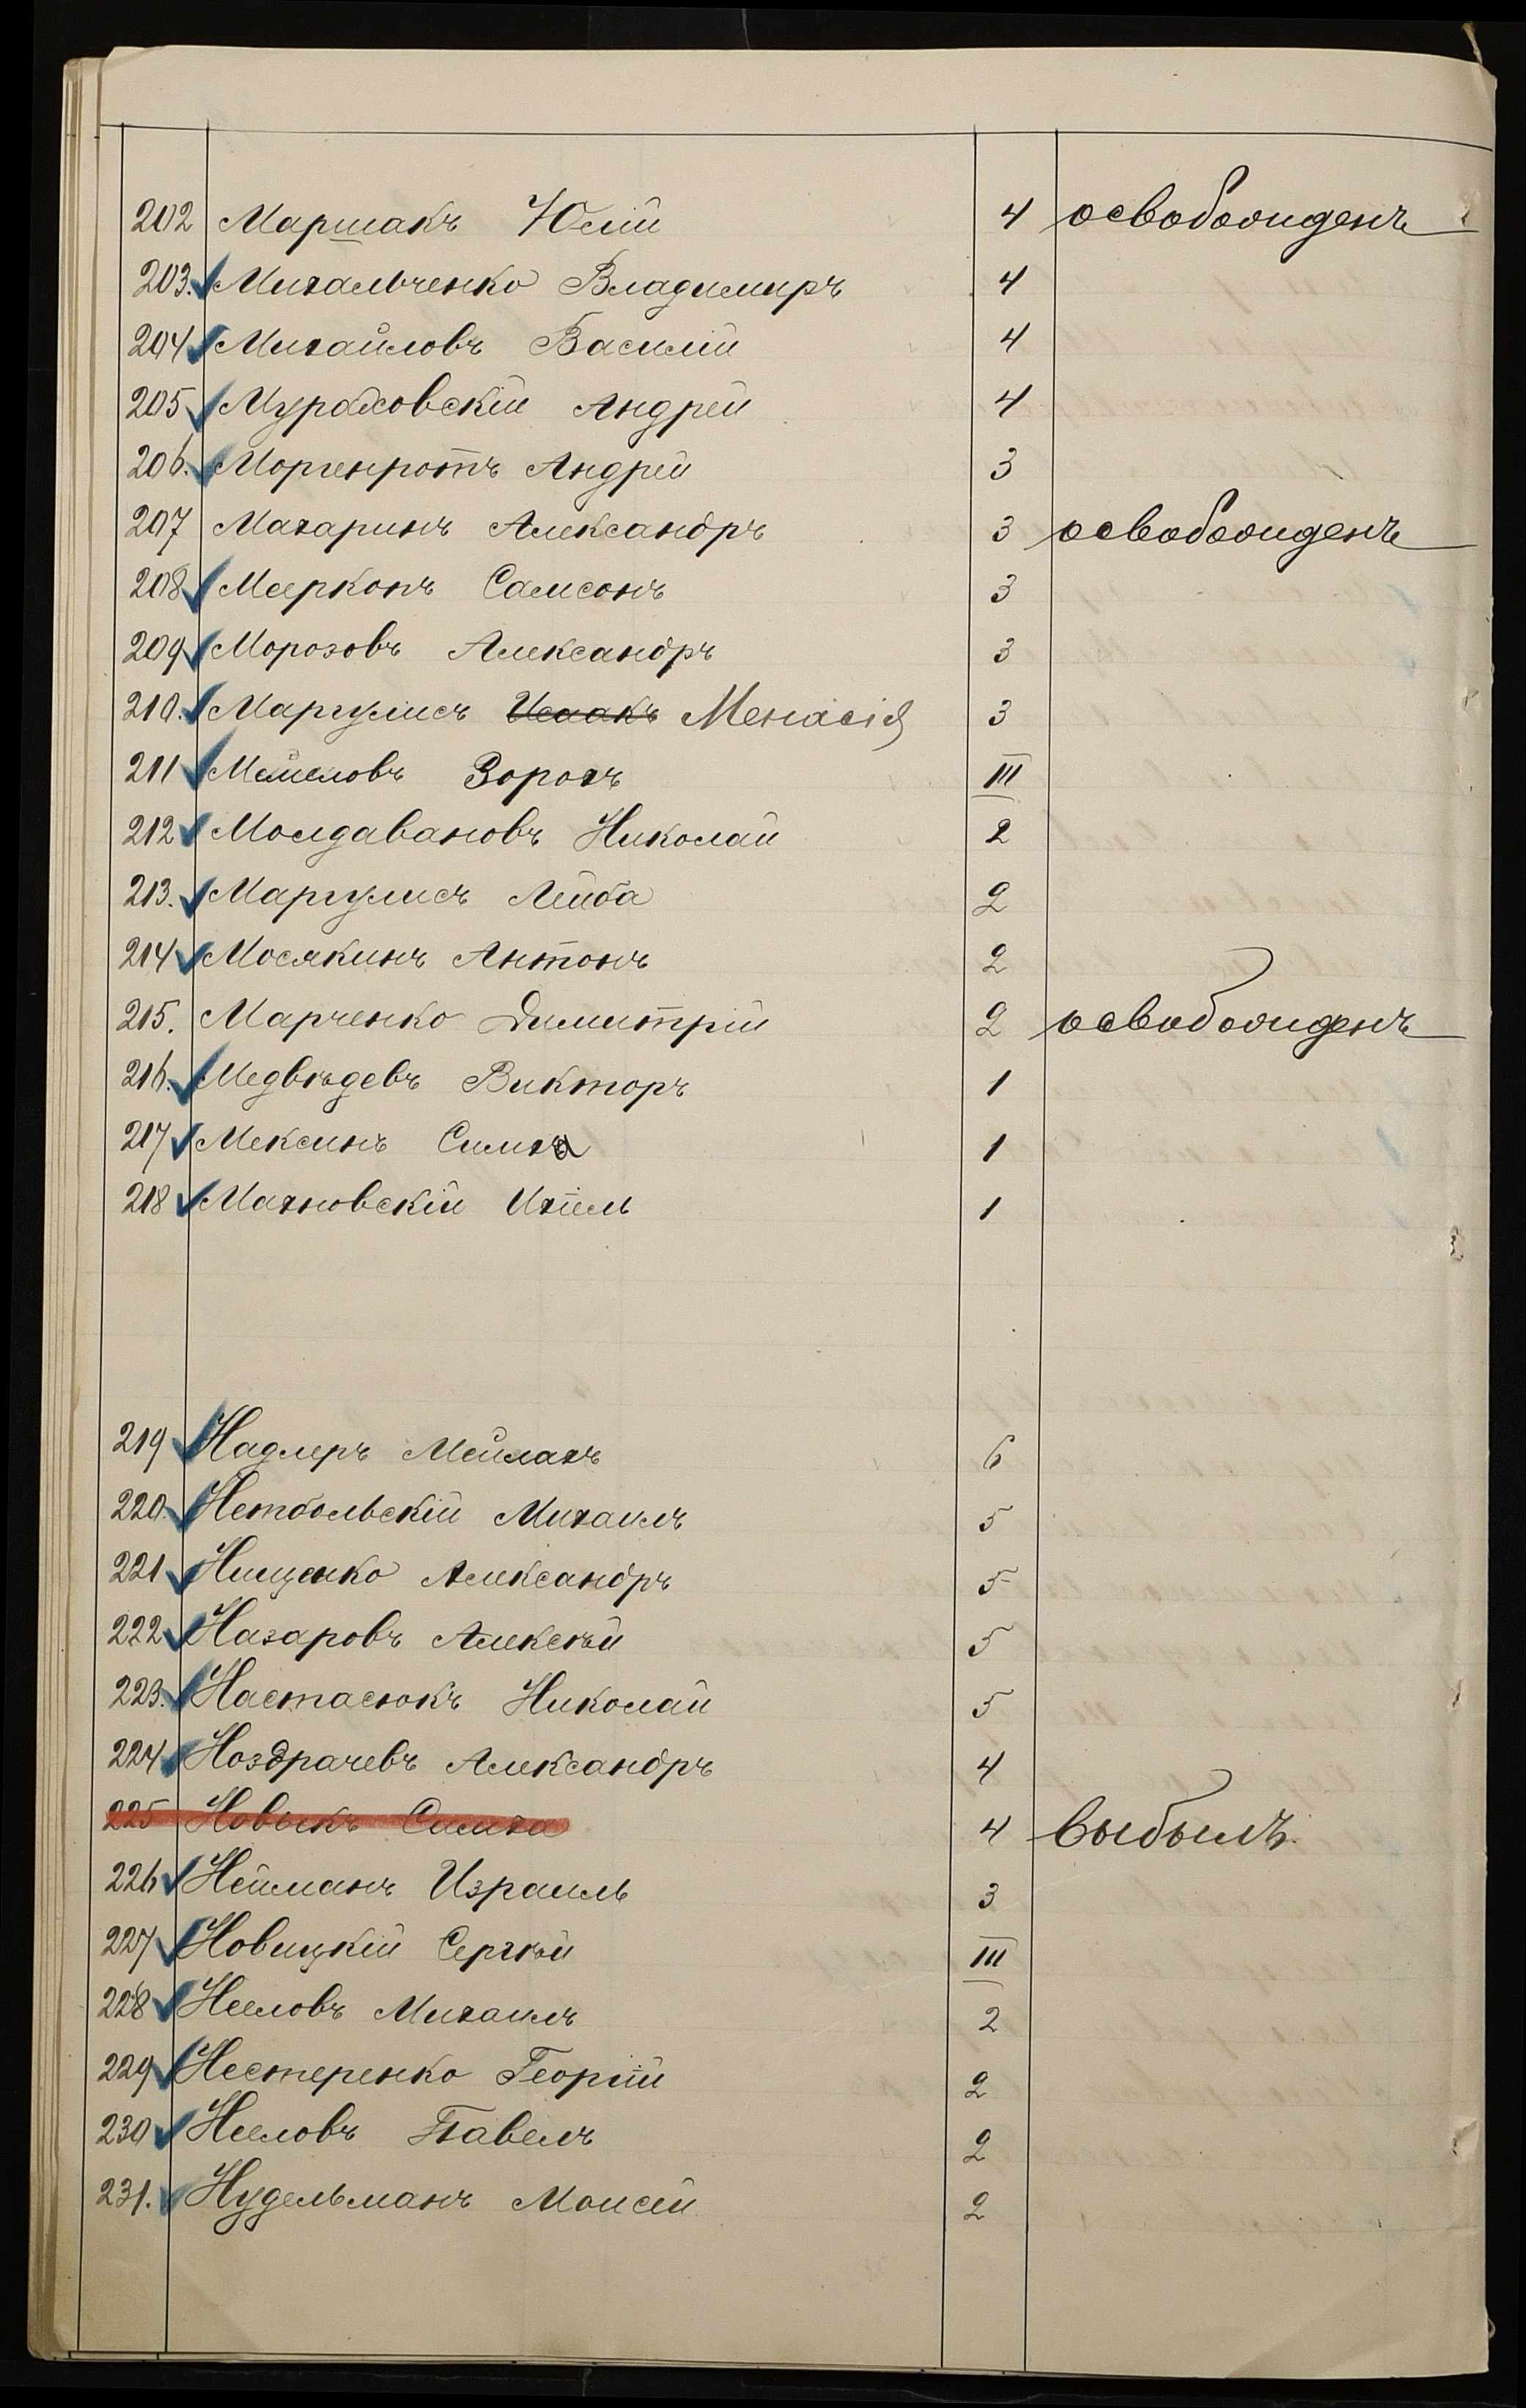 202 Маршакъ Юлій 4 освобожденъ
203. Михальченко Владимиръ 4
204 Михайловъ Василій 4
205 Мураховскій Андрей 4
206. Моргенротъ Андрей 3
207 Махаринъ Александръ 3 освобожденъ
208 Мееркопъ Самсонъ 3
209 Морозовъ Александръ 3
210. Маргулисъ Исаакъ Менасія 3
211 Мешеловъ Зорохъ III
212 Молдавановъ Николай 2
213. Маргулисъ Лейба 2
214 Мосякинъ Антонъ 2
215. Марченко Димитрій 2 освобожденъ
216. Медвѣдевъ Викторъ 1
217 Мексинъ Симха 1
218 Махновскій Ихіель 1
219 Надлеръ Мейлахъ 6
220. Нетбольскій Михаилъ 5
221 Нищенко Александръ 5
222 Назаровъ Алексѣй 5
223. Настасюкъ Николай 5
224 Ноздрачевъ Александръ 4
225 Новыкъ Симха 4 выбылъ.
226 Нейманъ Израиль 3
227 Новицкій Сергѣй III
228 Нееловъ Михаилъ 2
229 Нестеренко Георгій 2
230 Нееловъ Павелъ 2
231. Нудельманъ Моисей 2